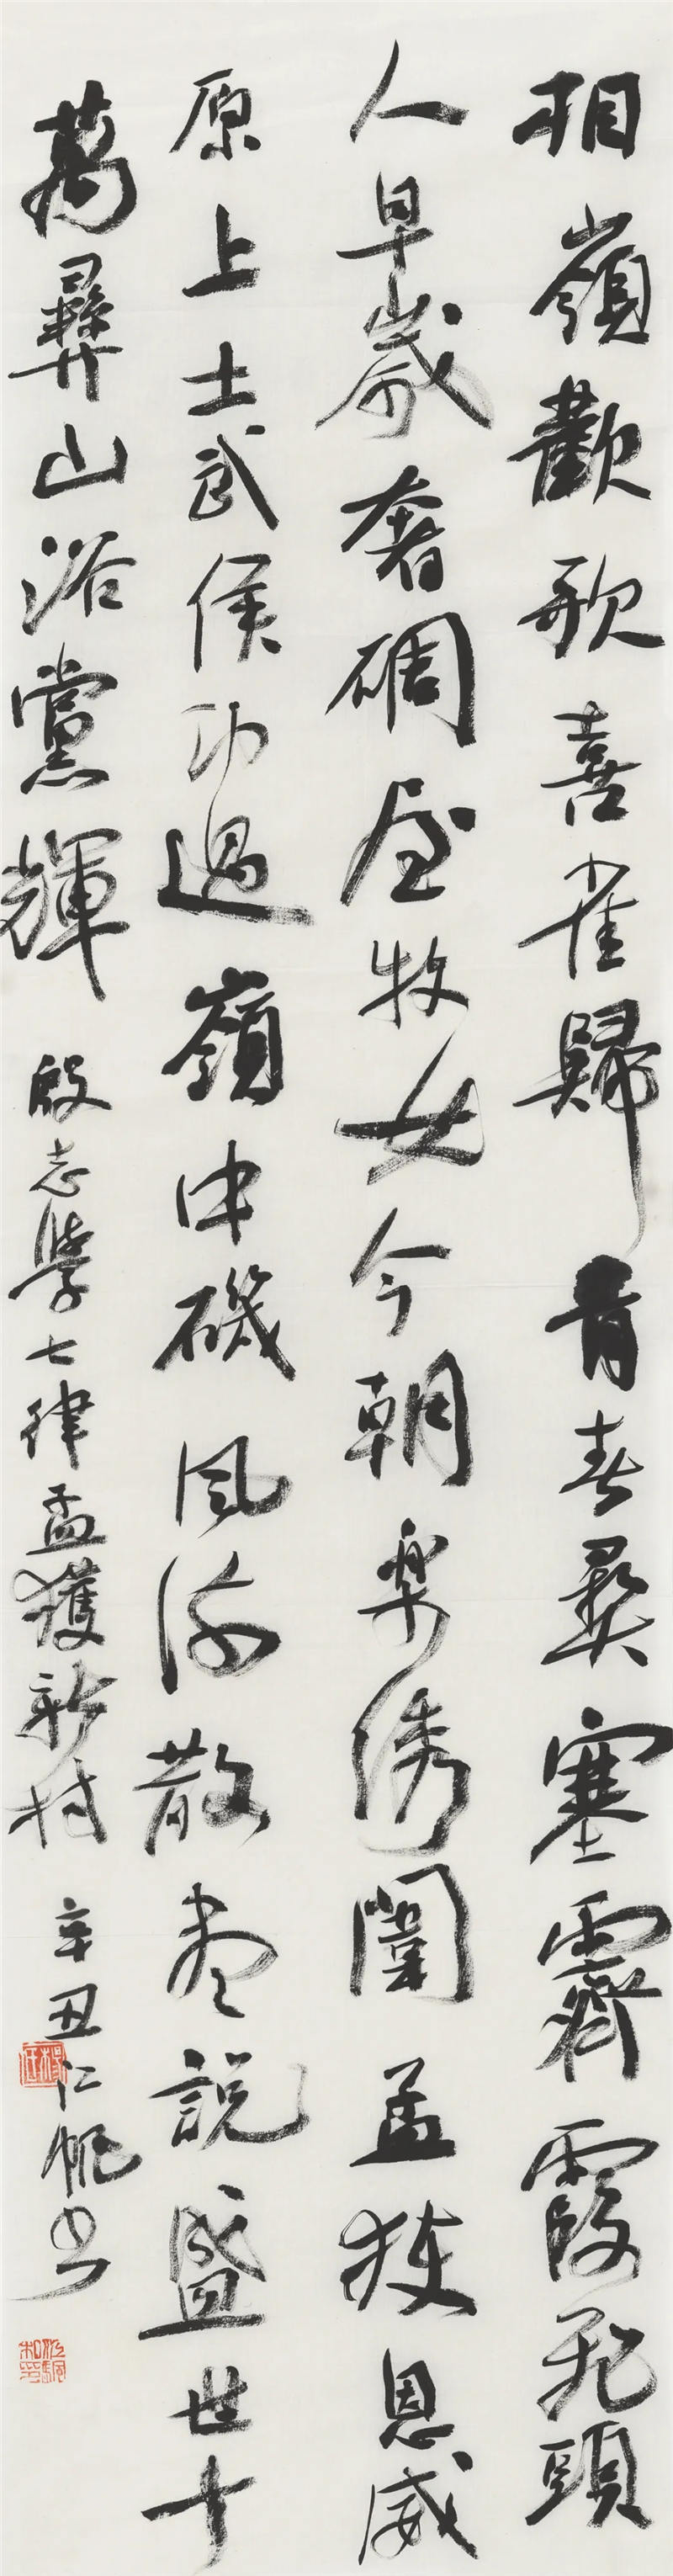 相嶺歡歌喜雀歸青春彝塞霽霞飛頭
人早歲奢碉屋牧女今朝樂綉闈孟获恩威
原上士武侯功過嶺中磯風流散尽說盛世千
萬彝山浴黨輝 殷志學七律孟獲新村 辛丑仁帆书